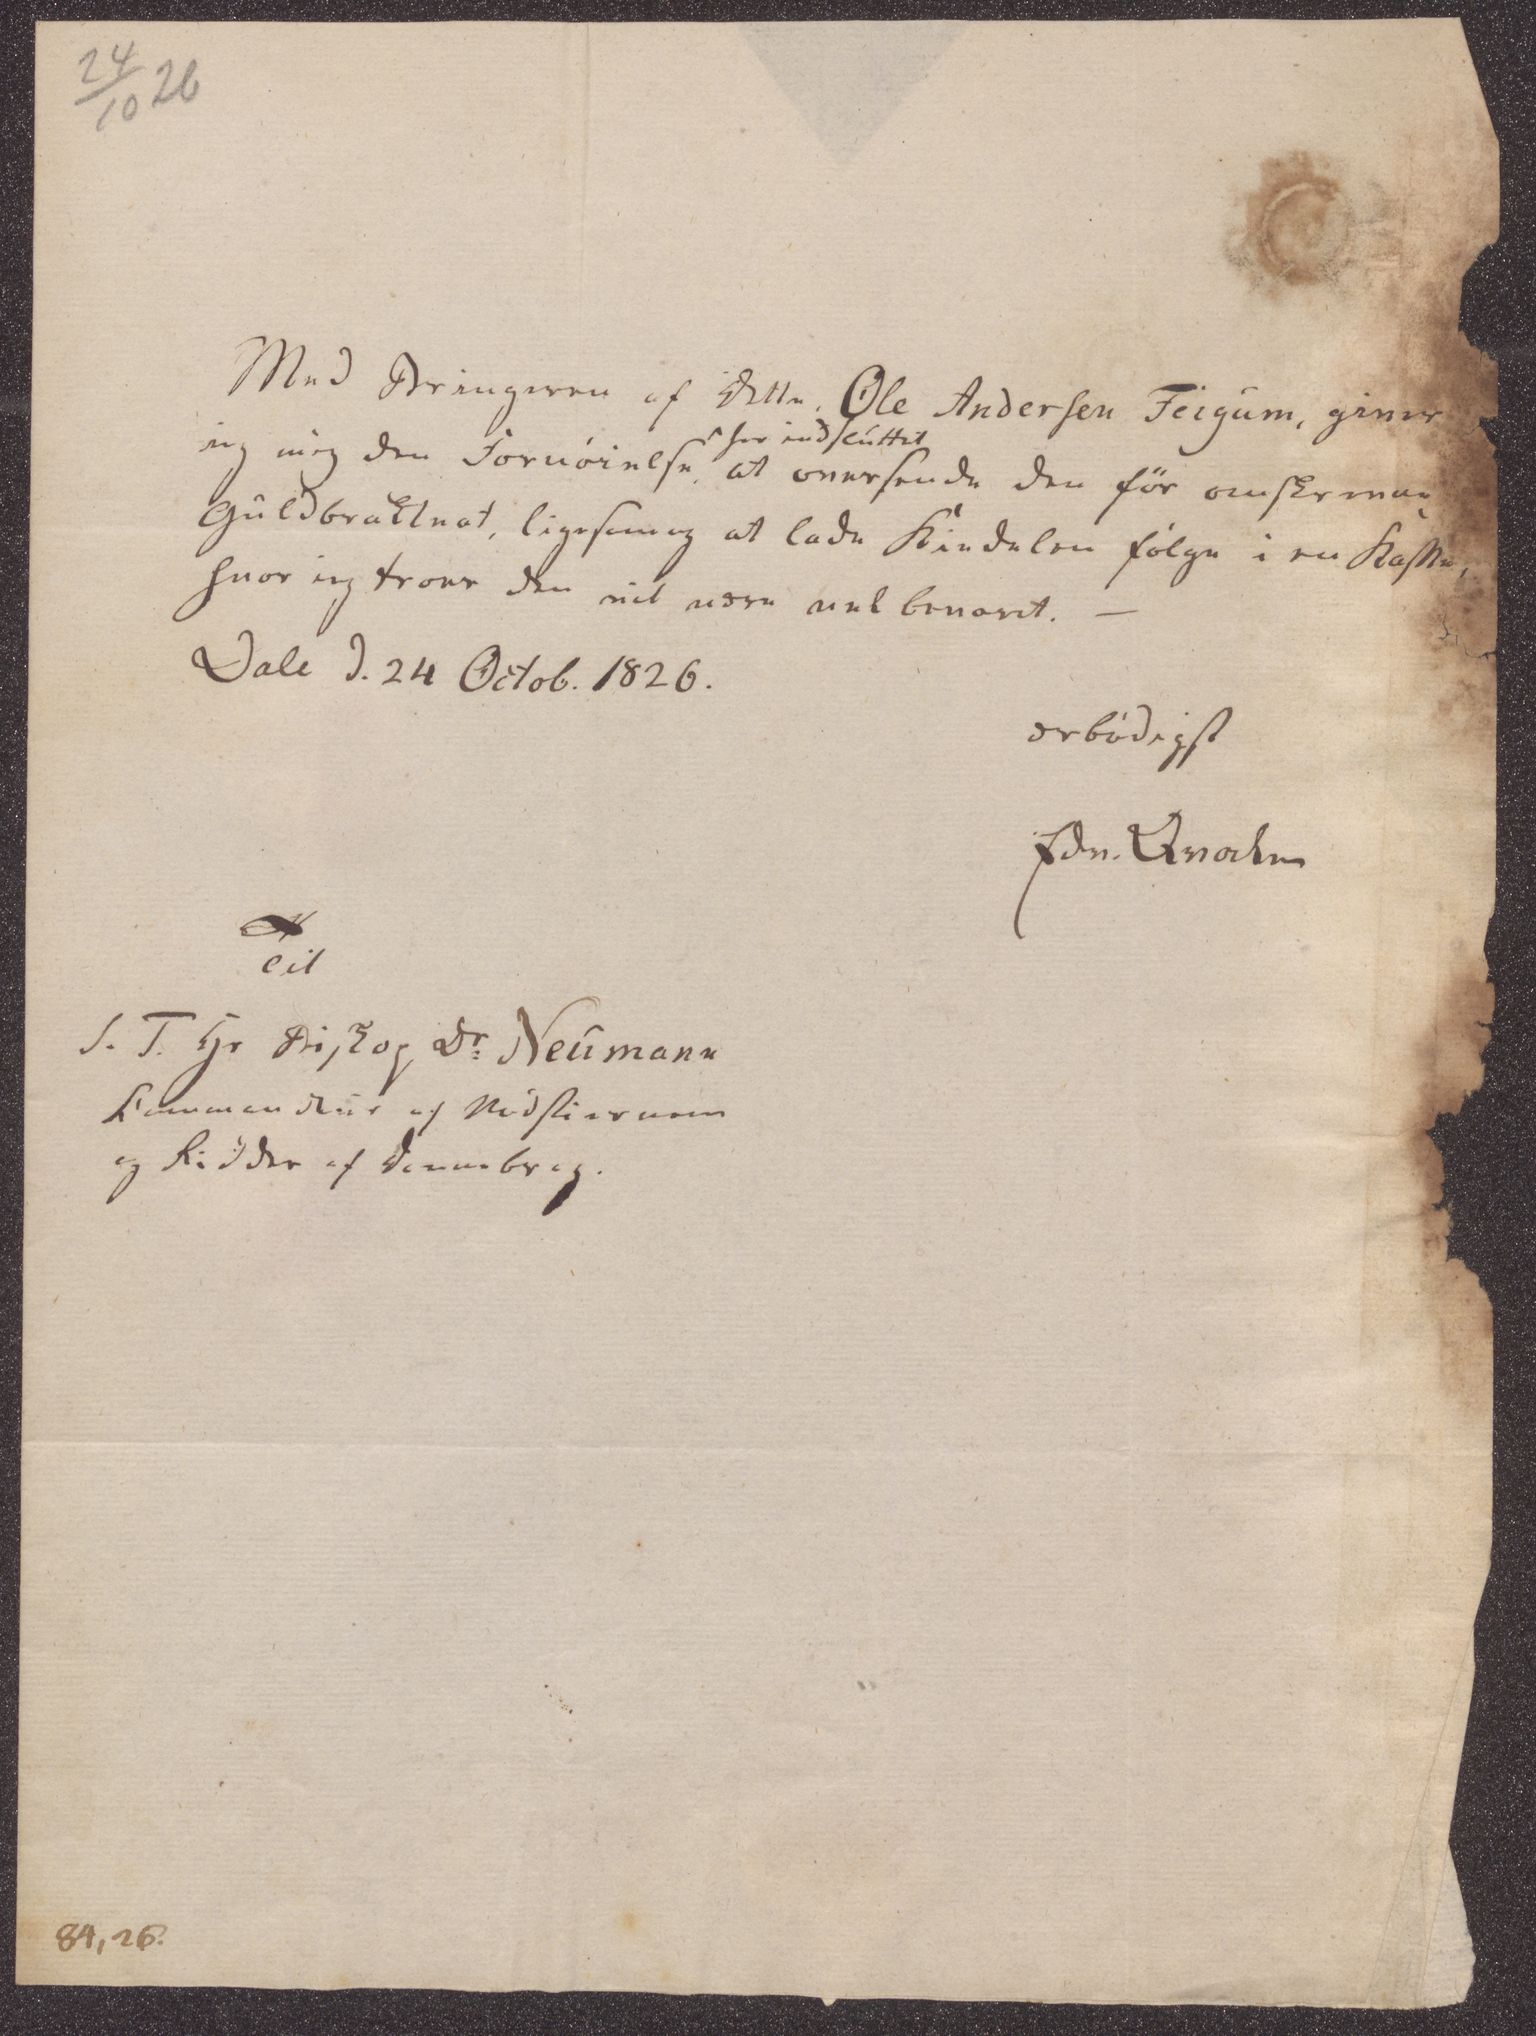 24/10 26
Med Bringeren af dette, Ole Andersen Feigum, giver
ieg mig den Fornöielse, at oversende den för omskrevne
her indsluttet
Guldbrakteat, ligesom og at lade Kiedelen følge i en Kasse,
hvor ieg troer den vil være vel bevaret. —
Dale d. 24 Octob. 1826.
ærbödigst
Til
S. T. Hr Biskop Dr: Neumann
Kommandeur af Nordstiernen
og Ridder af Dannebrog.
84,26.